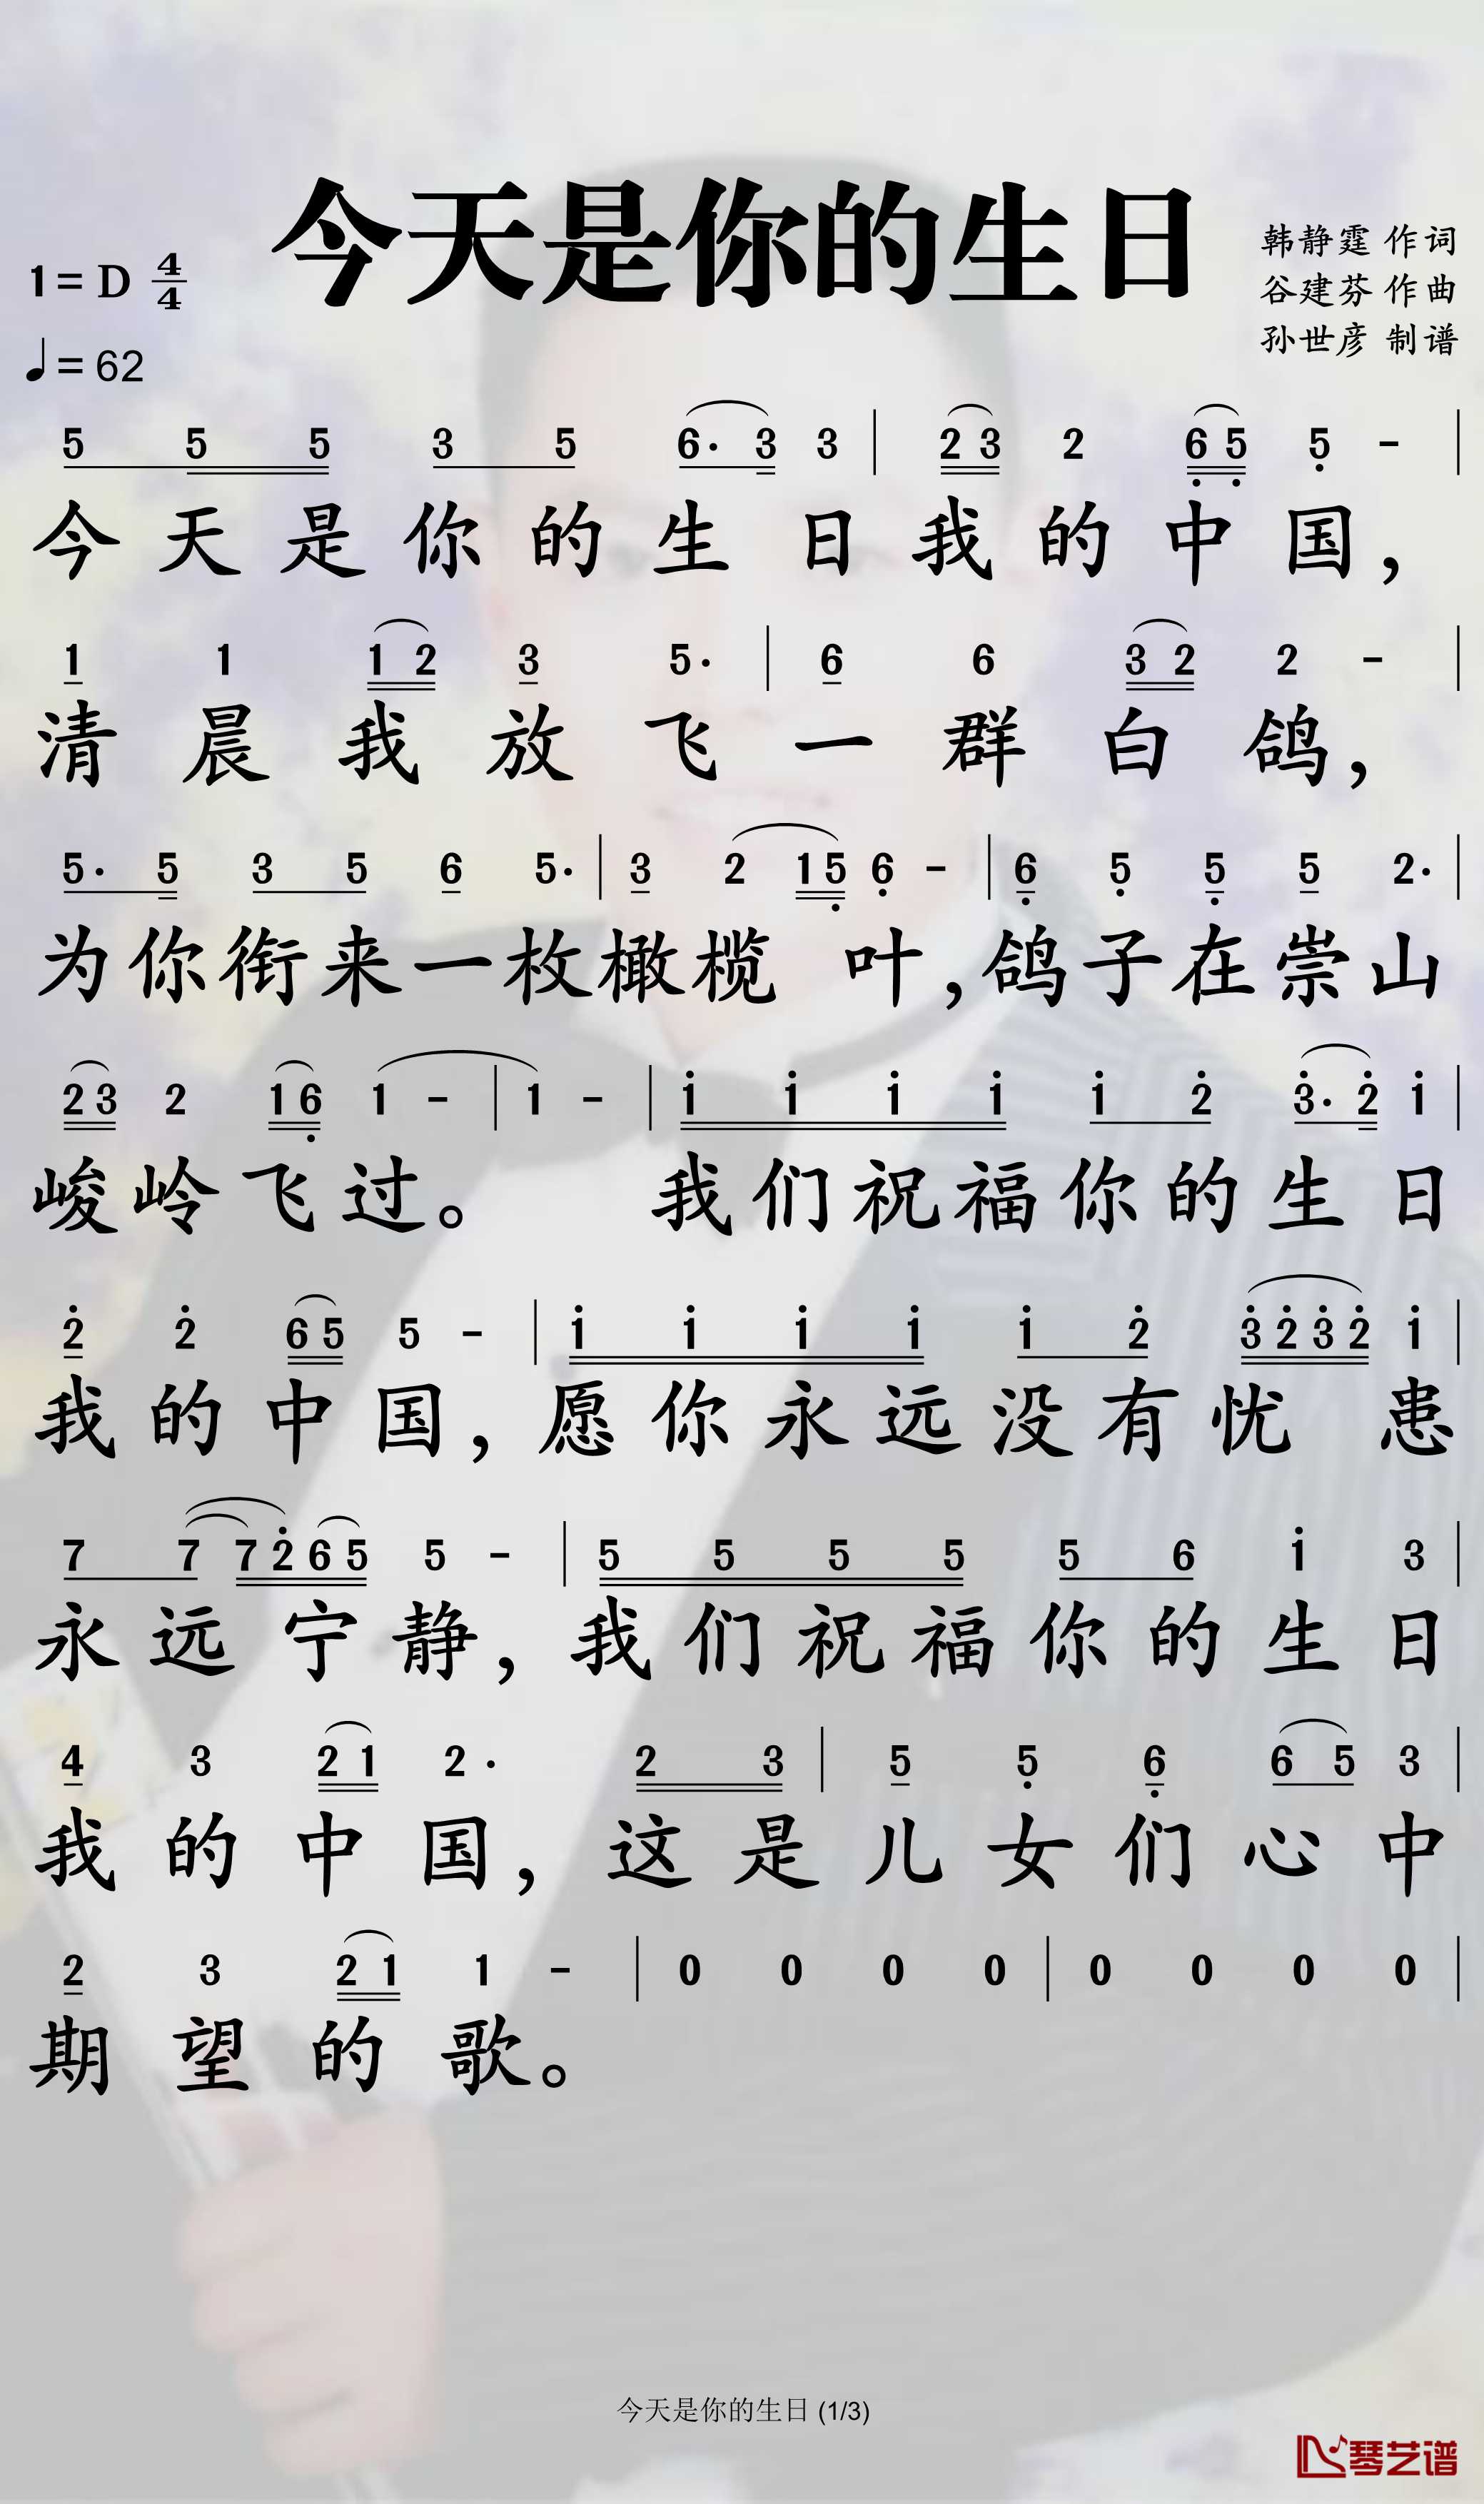 今天是你的生日
1=D 4/4
♩=62
韩静霆 作词
谷建芬 作曲
孙世彦 制谱
5 5 5 3 5 6· 3 3 | 2 3 2 6̣ 5̣ 5̣ - |
今天是你的生日我的中国，
1 1 1 2 3 5· | 6 6 3 2 2 - |
清晨我放飞一群白鸽，
5· 5 3 5 6 5· | 3 2 1 5̣ 6̣ - | 6̣ 5̣ 5̣ 5 2· |
为你衔来一枚橄榄 叶，鸽子在崇山
2 3 2 1 6̣ 1 - | 1 - | 1̇ 1̇ 1̇ 1̇ 1̇ 2̇ 3̇· 2̇ 1̇ |
峻岭飞过。 我们祝福你的生日
2̇ 2̇ 6 5 5 - | 1̇ 1̇ 1̇ 1̇ 1̇ 2̇ 3̇ 2̇ 3̇ 2̇ 1̇ |
我的中国，愿你永远没有忧 患
7 7 7 2̇ 6 5 5 - | 5 5 5 5 5 6 1̇ 3 |
永远宁静，我们祝福你的生日
4 3 2 1 2· 2 3 | 5 5̣ 6̣ 6 5 3 |
我的中国，这是儿女们心中
2 3 2 1 1 - | 0 0 0 0 | 0 0 0 0 |
期望的歌。
今天是你的生日 (1/3)
琴艺谱